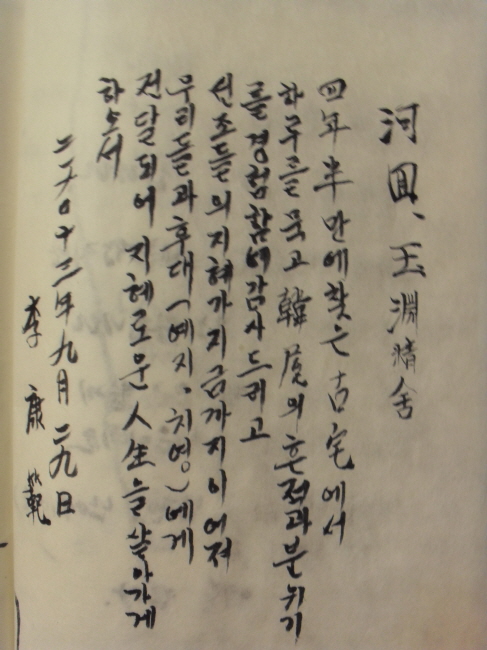 河回、玉淵精舍
四年半만에 찾은 古宅에서
하루를 묵고 韓屋의 흔적과 분위기
를 경험함에 감사드리고
선조들의 지혜가 지금까지 이어져
우리들과 후대(예지、치영)에게
전달되어 지혜로운 人生을 살아가게
하소서
二千〇十三年九月二九日
李康範